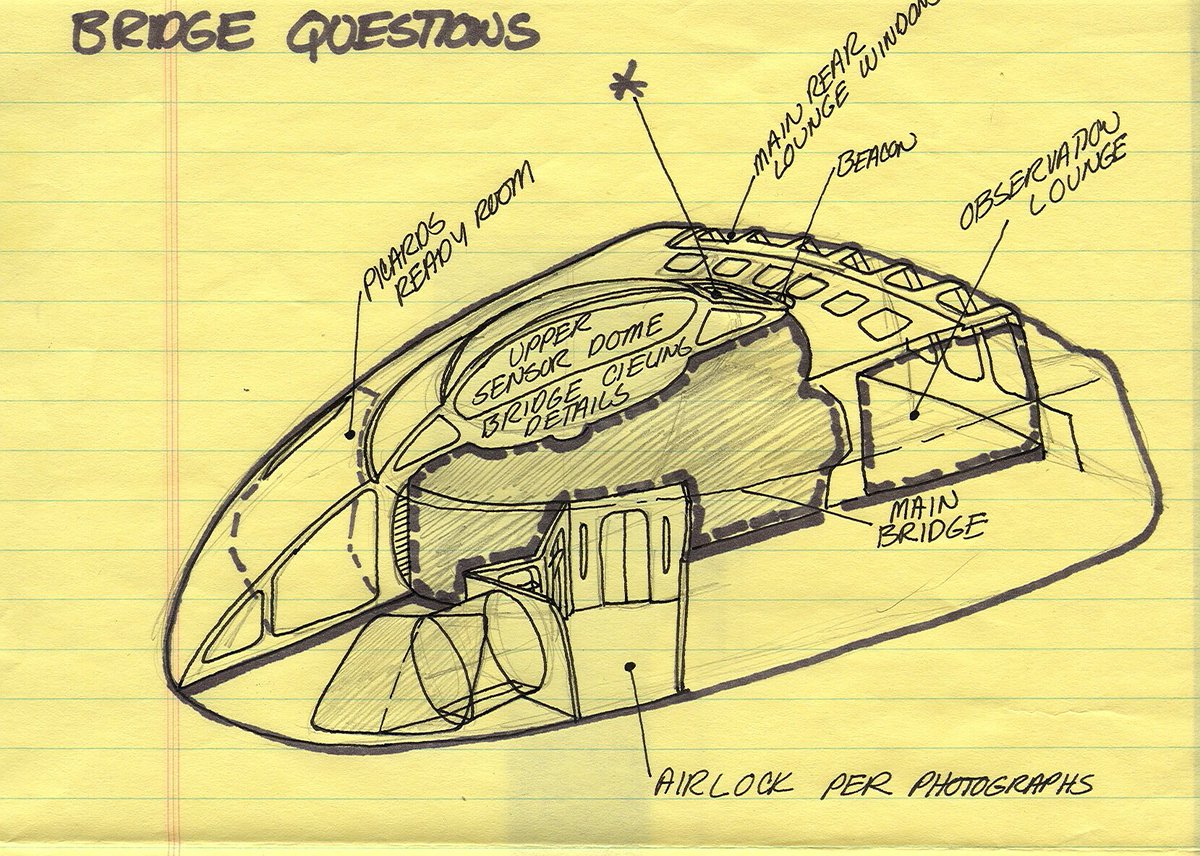 BRIDGE QUESTIONS
*
MAIN REAR
LOUNGE WINDOWS
BEACON
OBSERVATION
LOUNGE
PICARDS
READY ROOM
UPPER
SENSOR DOME
BRIDGE CIELING
DETAILS
MAIN
BRIDGE
AIRLOCK PER PHOTOGRAPHS